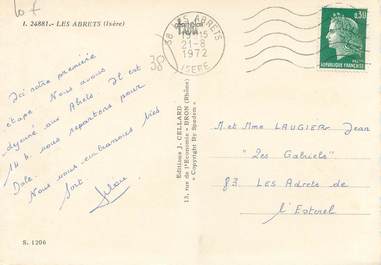 10 F
I. 24881.- LES ABRETS (Isère)
38 LES ABRETS
19H15
21-8
1972
ISERE
0,30
REPUBLIQUE FRANÇAISE
38
Ici notre première
étape. Nous avons
déjeuné aux Abrets. Il est
14 h. nous repartons pour
Dole.
Nous vous embrassons très
fort
Editions J. CELLARD
13, rue de l'Economie - BRON (Rhône)
" Copyright By Spadem "
M. et Mme LAUGIER Jean
"Les Gabriels"
83 LES Adrets de
l'Esterel
S. 1206